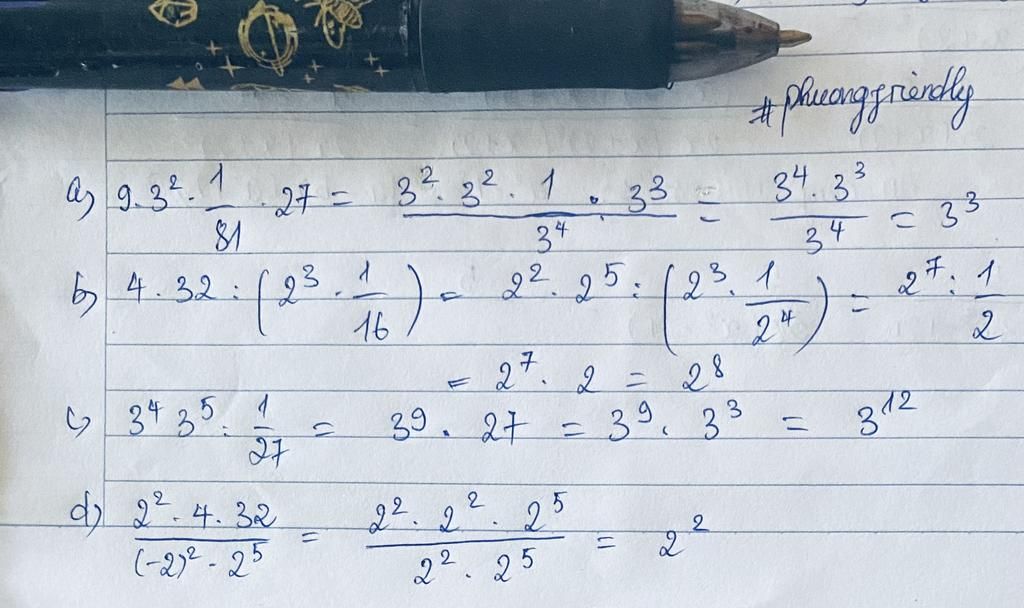 #phuongfriendly
a) 9.3² . 1/81 . 27 = (3² . 3² . 1 . 3³)/3⁴ = (3⁴ . 3³)/3⁴ = 3³
b) 4 . 32 : (2³ . 1/16) = 2² . 2⁵ : (2³ . 1/2⁴) = 2⁷ : 1/2
= 2⁷ . 2 = 2⁸
c) 3⁴ 3⁵ : 1/27 = 3⁹ . 27 = 3⁹ . 3³ = 3¹²
d) (2² . 4 . 32)/((-2)² . 2⁵) = (2² . 2² . 2⁵)/(2² . 2⁵) = 2²